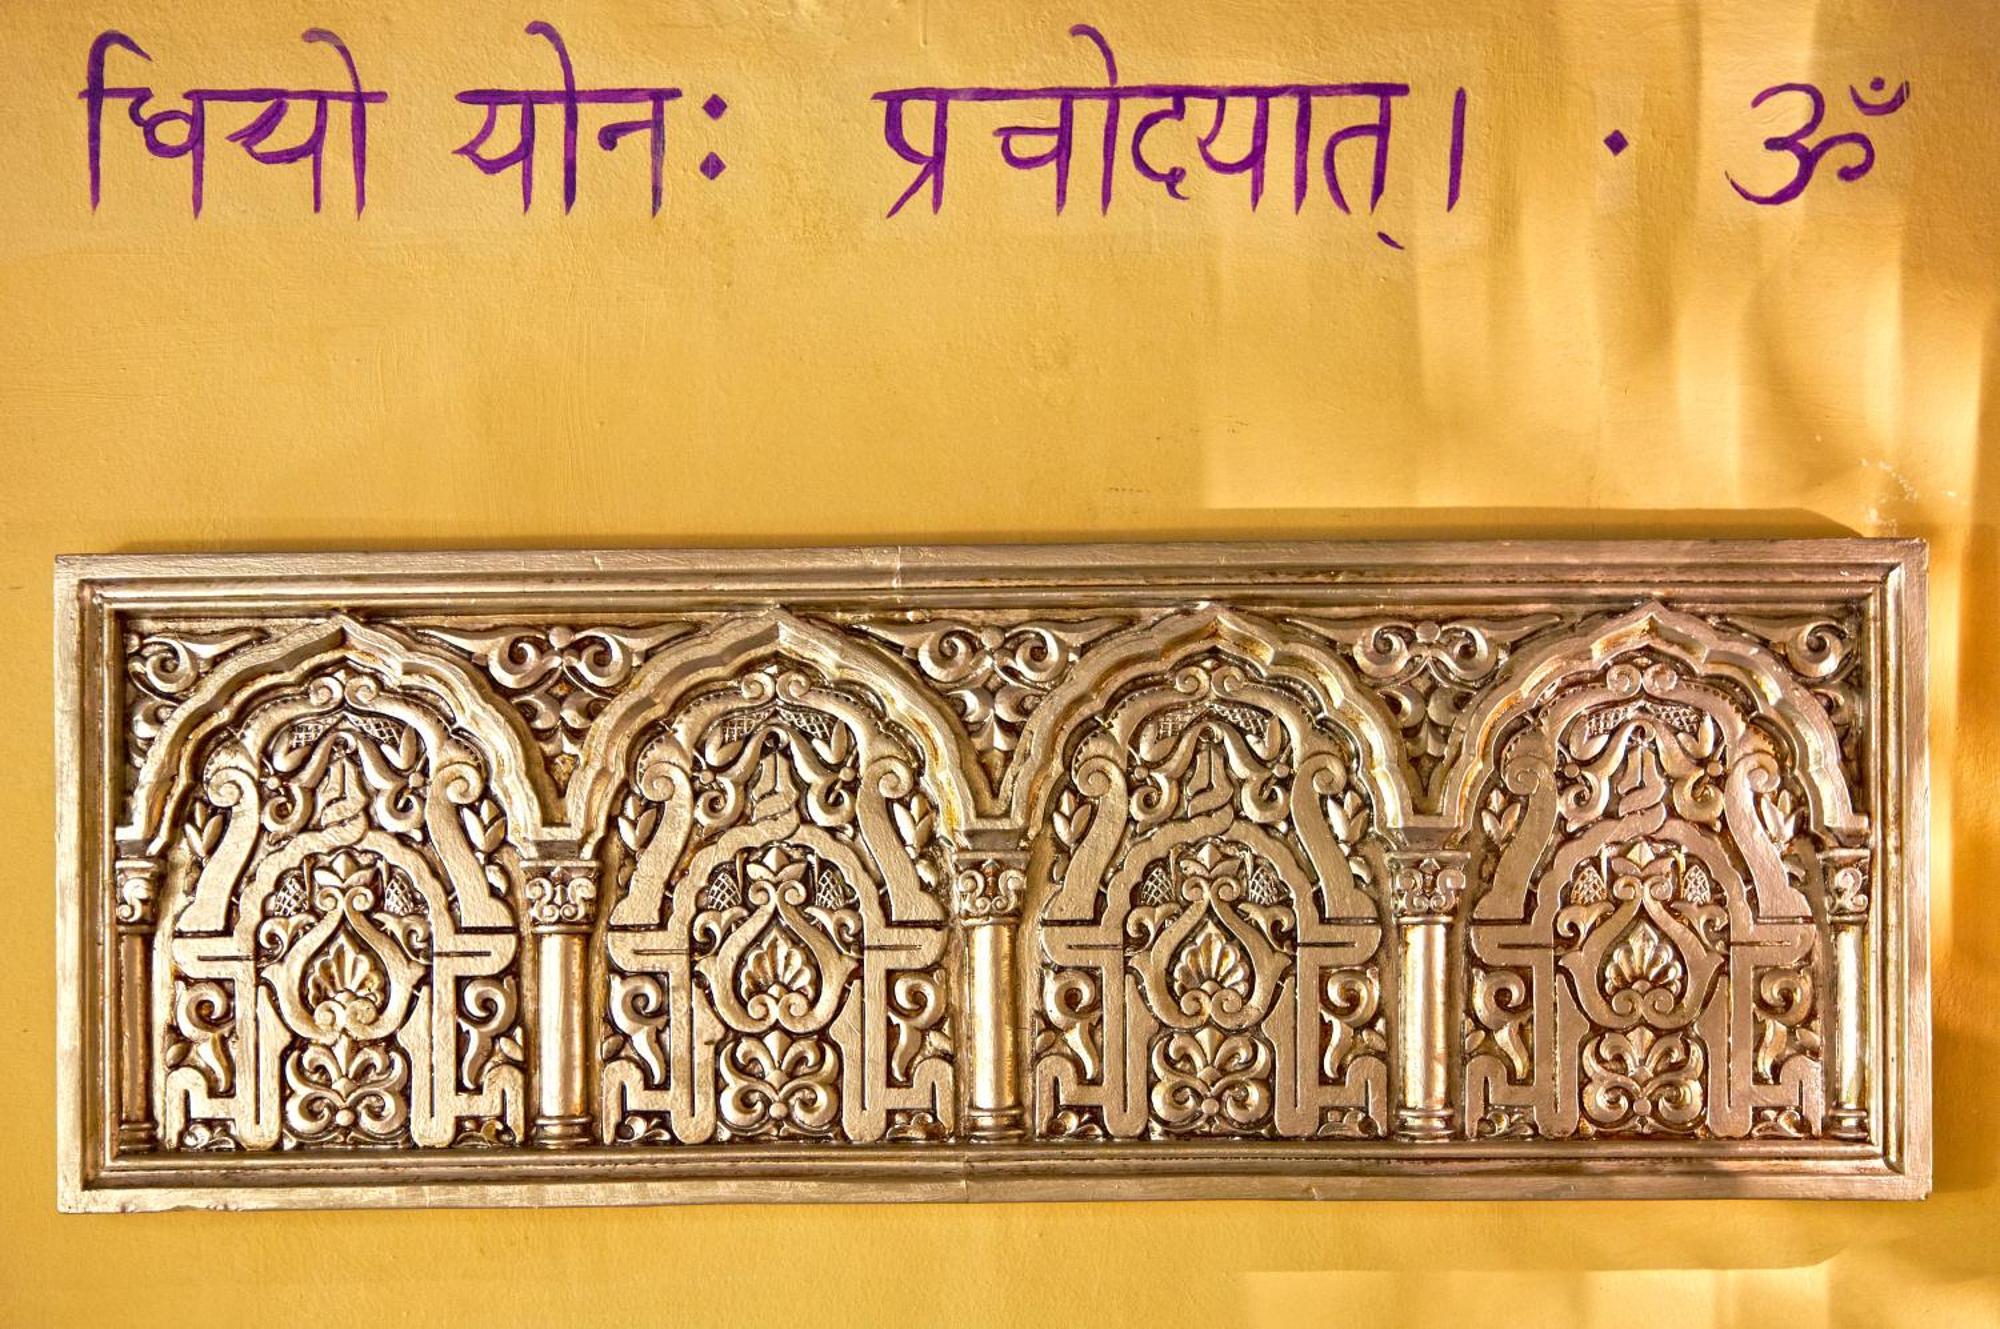 धियो योनः प्रचोदयात्। · ॐ